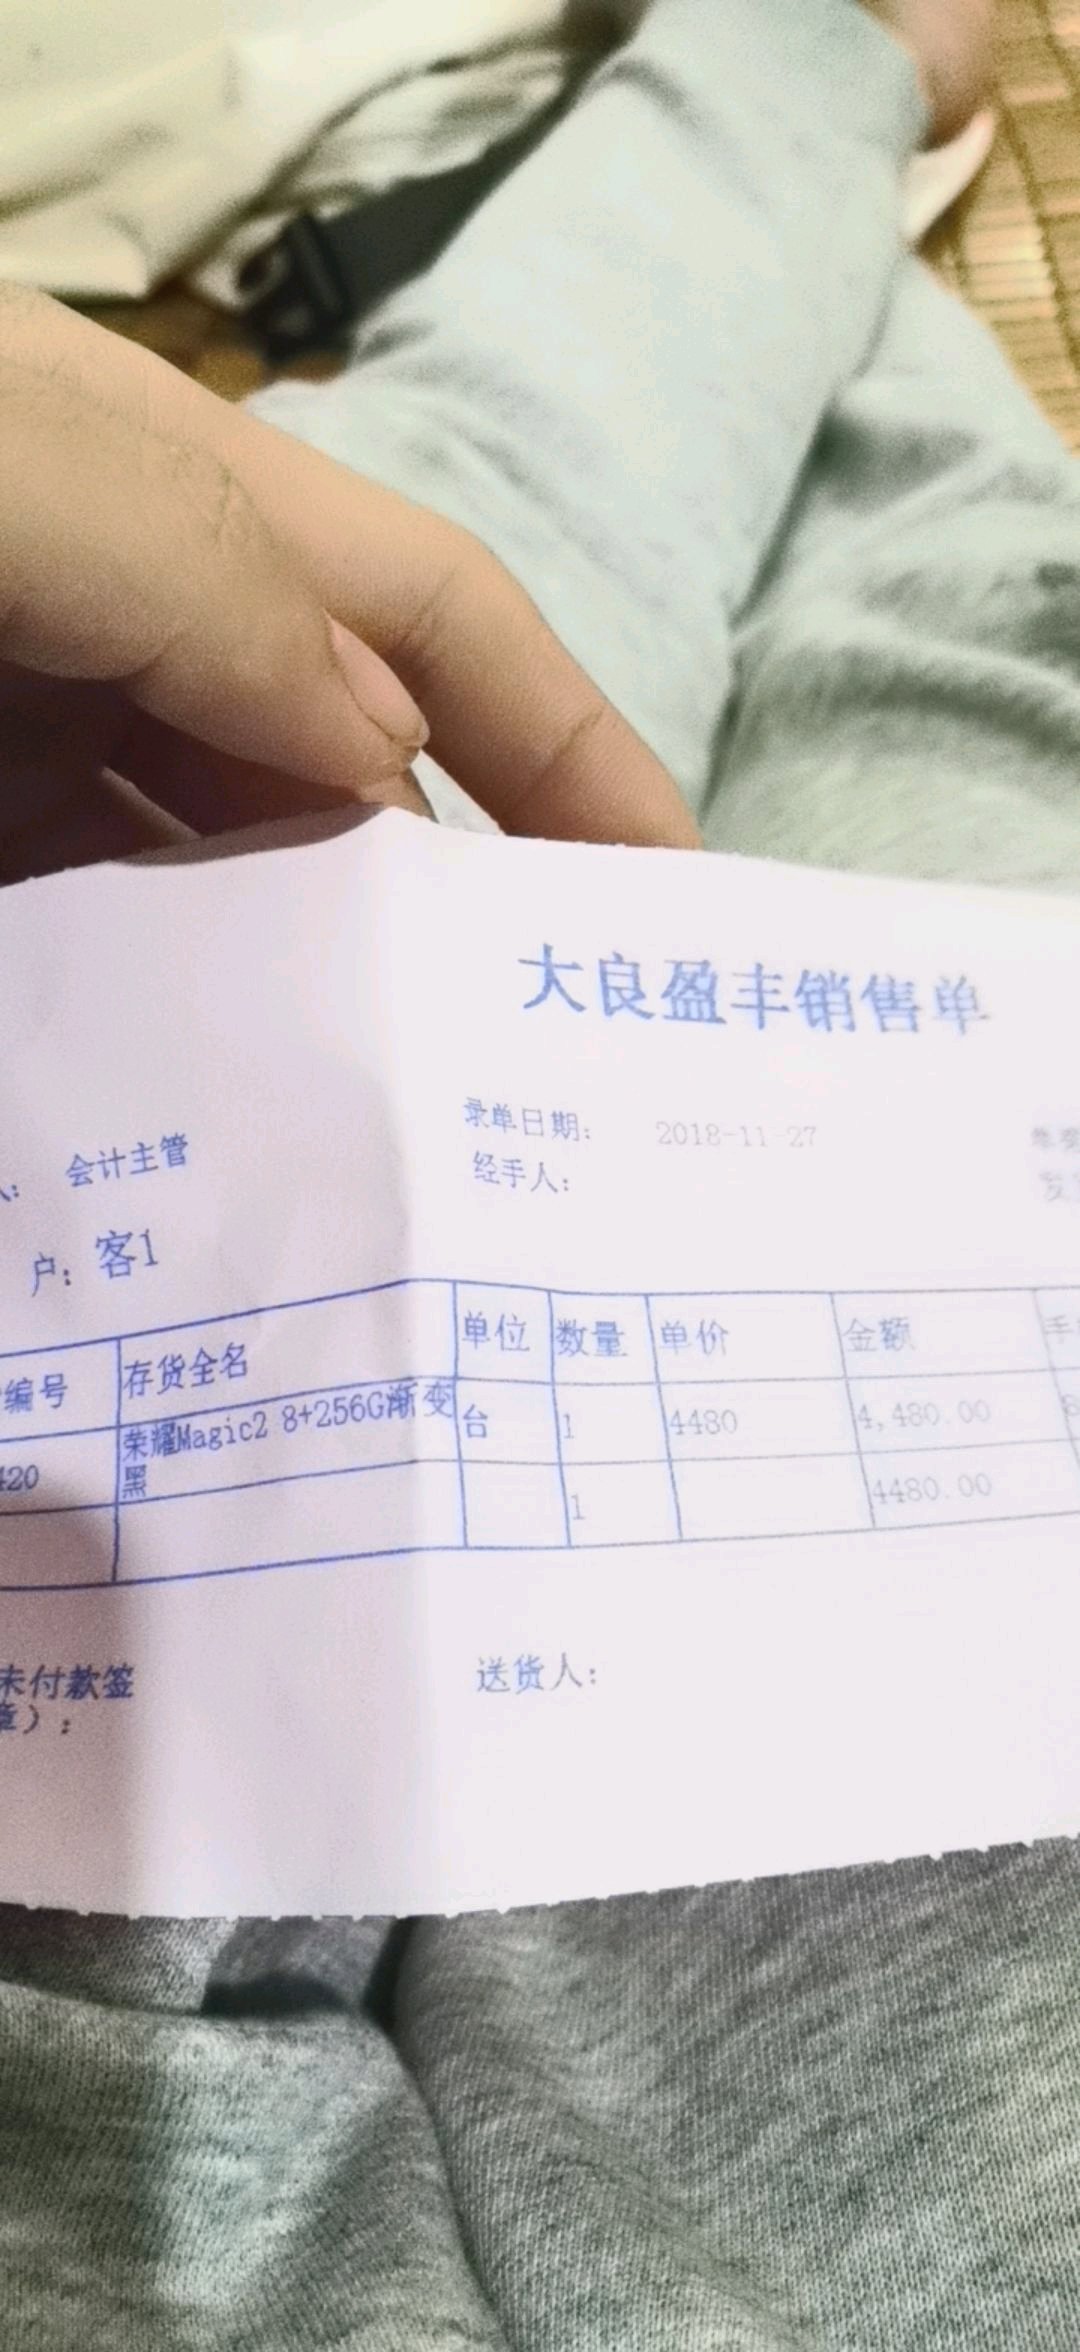 大良盈丰销售单
录单日期： 2018-11-27
会计主管
经手人：
户：客1
编号 存货全名 单位 数量 单价 金额
420 荣耀Magic2 8+256G渐变黑 台 1 4480 4,480.00
1 4480.00
未付款签 送货人：
章）：